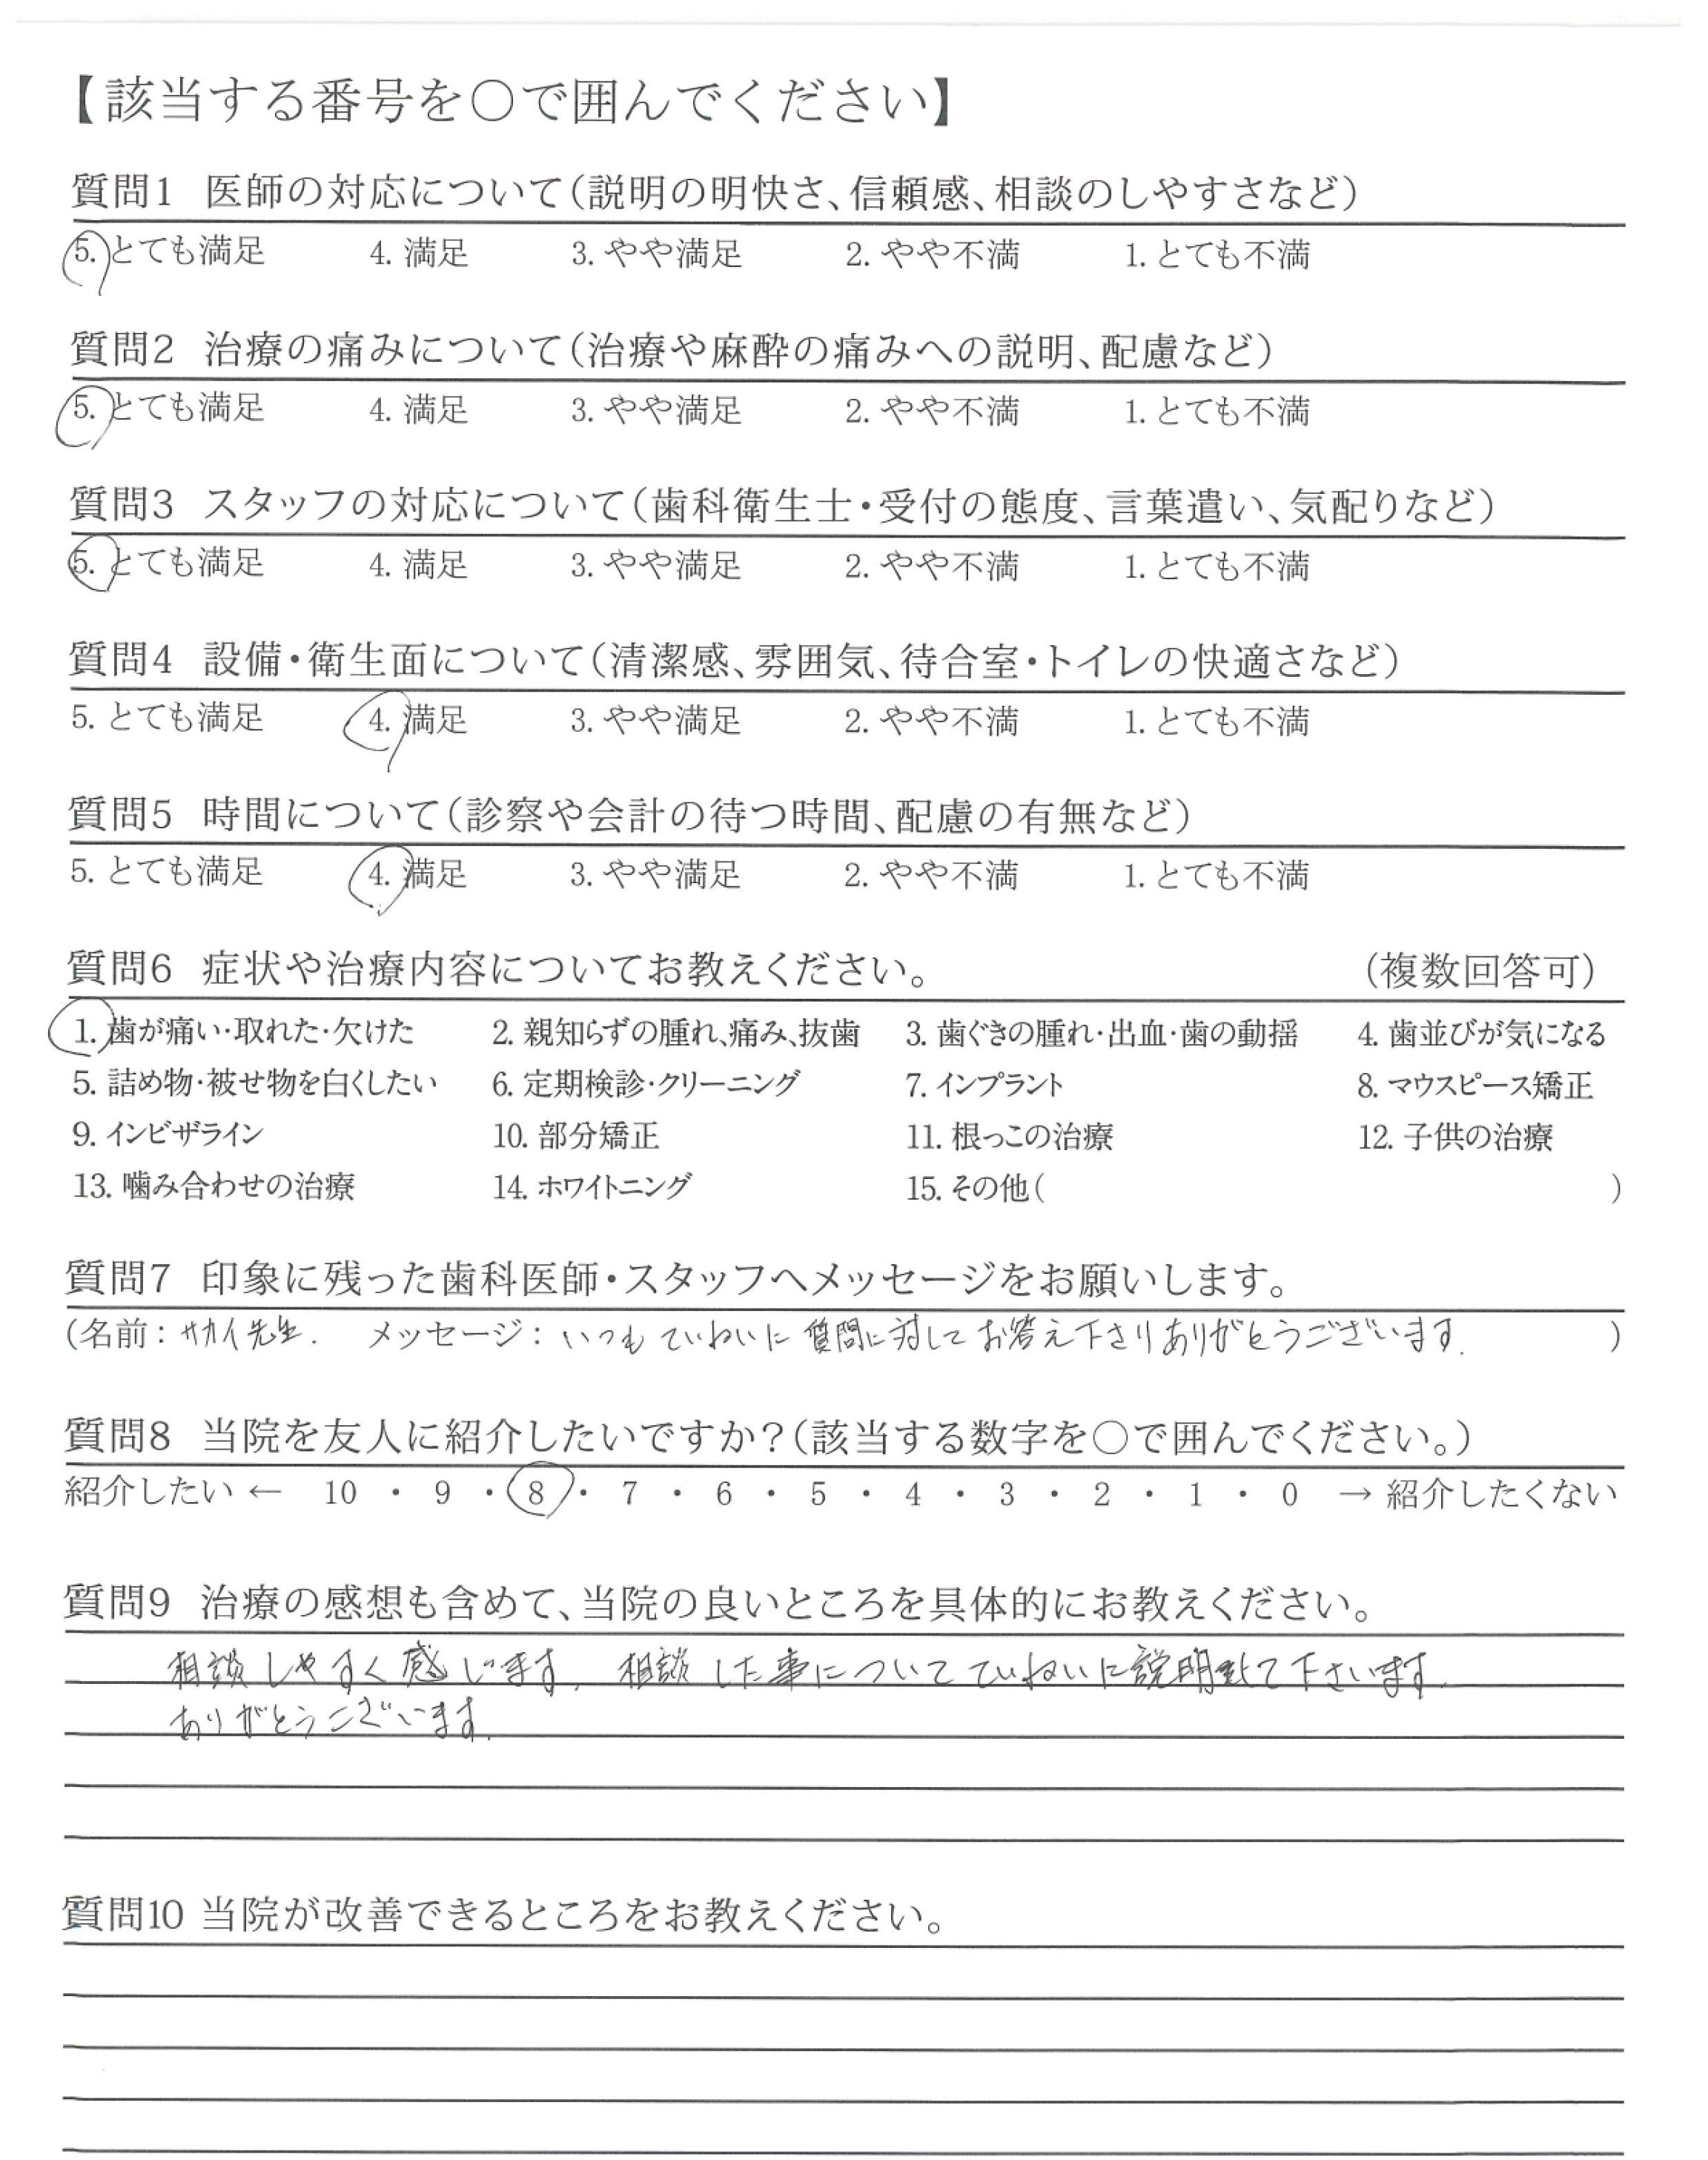 【該当する番号を〇で囲んでください】
質問1 医師の対応について(説明の明快さ、信頼感、相談のしやすさなど)
5. とても満足 4. 満足 3. やや満足 2. やや不満 1. とても不満
質問2 治療の痛みについて(治療や麻酔の痛みへの説明、配慮など)
5. とても満足 4. 満足 3. やや満足 2. やや不満 1. とても不満
質問3 スタッフの対応について(歯科衛生士・受付の態度、言葉遣い、気配りなど)
5. とても満足 4. 満足 3. やや満足 2. やや不満 1. とても不満
質問4 設備・衛生面について(清潔感、雰囲気、待合室・トイレの快適さなど)
5. とても満足 4. 満足 3. やや満足 2. やや不満 1. とても不満
質問5 時間について(診察や会計の待つ時間、配慮の有無など)
5. とても満足 4. 満足 3. やや満足 2. やや不満 1. とても不満
質問6 症状や治療内容についてお教えください。 (複数回答可)
1. 歯が痛い・取れた・欠けた 2. 親知らずの腫れ、痛み、抜歯 3. 歯ぐきの腫れ・出血・歯の動揺 4. 歯並びが気になる
5. 詰め物・被せ物を白くしたい 6. 定期検診・クリーニング 7. インプラント 8. マウスピース矯正
9. インビザライン 10. 部分矯正 11. 根っこの治療 12. 子供の治療
13. 噛み合わせの治療 14. ホワイトニング 15. その他( )
質問7 印象に残った歯科医師・スタッフへメッセージをお願いします。
(名前：サカイ先生. メッセージ：いつもていねいに質問に対してお答え下さりありがとうございます. )
質問8 当院を友人に紹介したいですか？(該当する数字を〇で囲んでください。)
紹介したい ← 10 ・ 9 ・ 8 ・ 7 ・ 6 ・ 5 ・ 4 ・ 3 ・ 2 ・ 1 ・ 0 → 紹介したくない
質問9 治療の感想も含めて、当院の良いところを具体的にお教えください。
相談しやすく感じます. 相談した事についてていねいに説明して下さいます.
ありがとうございます.
質問10 当院が改善できるところをお教えください。